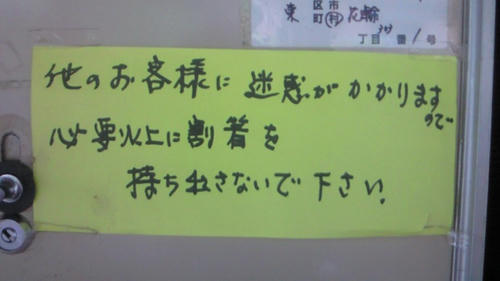 東 区市町村 花輪
丁目 番1号
他のお客様に 迷惑がかかりますので
必要以上に割箸を
持ち去さないで下さい.